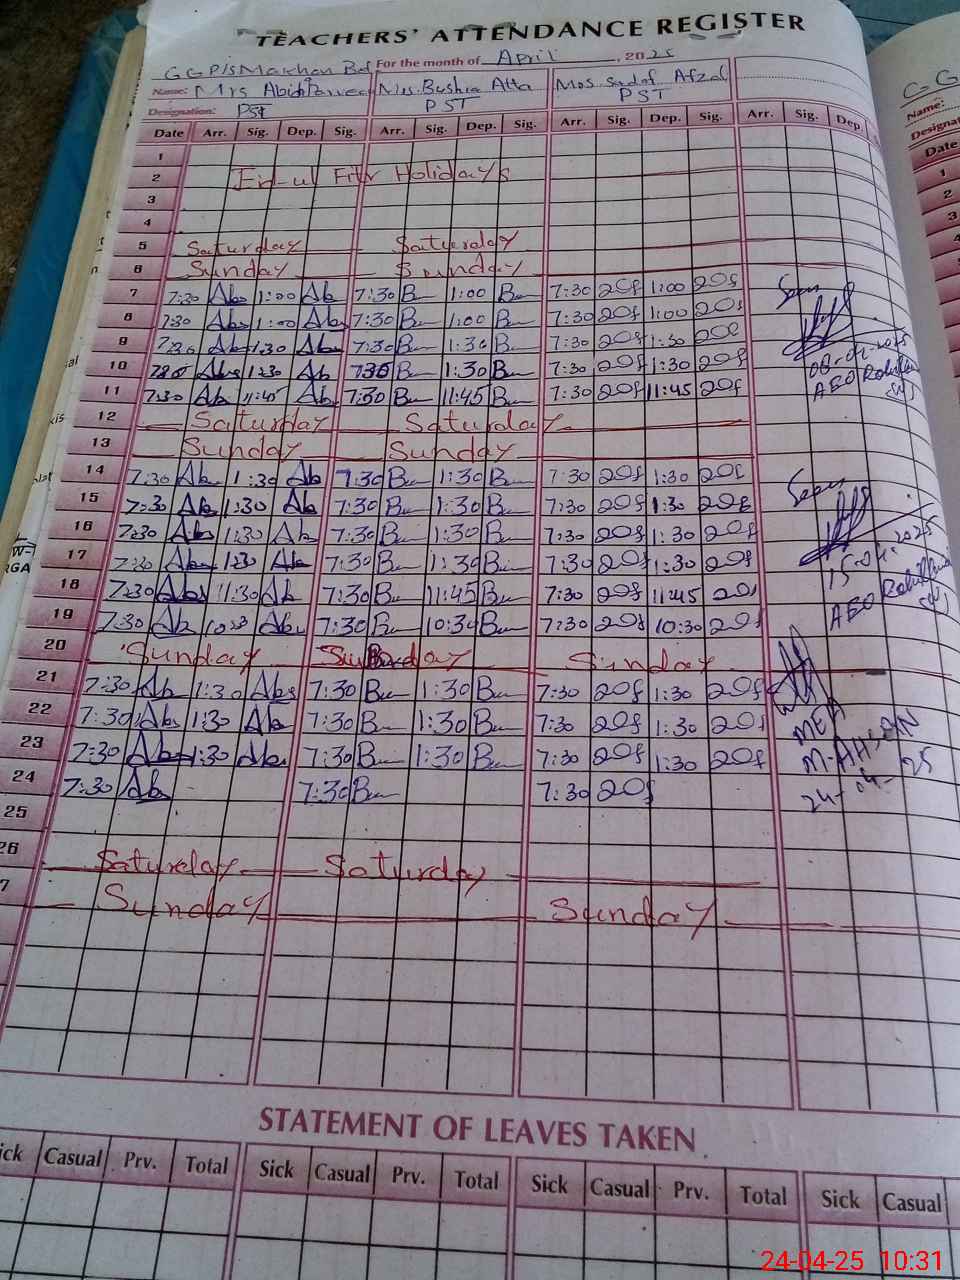 TEACHERS' ATTENDANCE REGISTER
For the month of April, 2025
Name: Mrs Abida Parveen Mrs. Bushra Atta Mrs Sadaf Afzal
Designation: PST PST PST
Date Arr. Sig. Dep. Sig. Arr. Sig. Dep. Sig. Arr. Sig. Dep. Sig. Arr. Sig. Dep.
1
2 Eid-ul Fitr Holidays
3
4
5 Saturday Saturday
6 Sunday Sunday
7 7:30 Ab 1:00 Ab 7:30 Bu 1:00 Bu 7:30 1:00
8 7:30 Ab 1:00 Ab 7:30 Bu 1:00 Bu 7:30 1:00
9 7:30 Ab 1:30 Ab 7:30 Bu 1:30 Bu 7:30 1:30
10 7:30 Ab 1:30 Ab 7:30 Bu 1:30 Bu 7:30 1:30
11 7:30 Ab 11:45 Ab 7:30 Bu 11:45 Bu 7:30 11:45
12 Saturday Saturday
13 Sunday Sunday
14 7:30 Ab 1:30 Ab 7:30 Bu 1:30 Bu 7:30 1:30
15 7:30 Ab 1:30 Ab 7:30 Bu 1:30 Bu 7:30 1:30
16 7:30 Ab 1:30 Ab 7:30 Bu 1:30 Bu 7:30 1:30
17 7:30 Ab 1:30 Ab 7:30 Bu 1:30 Bu 7:30 1:30
18 7:30 Ab 11:30 Ab 7:30 Bu 11:45 Bu 7:30 11:45
19 7:30 Ab 10:30 Ab 7:30 Bu 10:30 Bu 7:30 10:30
20 Sunday Sunday Sunday
21 7:30 Ab 1:30 Ab 7:30 Bu 1:30 Bu 7:30 1:30
22 7:30 Ab 1:30 Ab 7:30 Bu 1:30 Bu 7:30 1:30
23 7:30 Ab 1:30 Ab 7:30 Bu 1:30 Bu 7:30 1:30
24 7:30 Ab 7:30 Bu 7:30
25
26 Saturday Saturday
7 Sunday Sunday
Seen
08-04-2025
AEO
Seen
15-04-2025
AEO
MEA
M. AHSAN
24-04-25
STATEMENT OF LEAVES TAKEN
ick Casual Prv. Total Sick Casual Prv. Total Sick Casual Prv. Total Sick Casual
Name:
Date
1
2
3
24-04-25 10:31